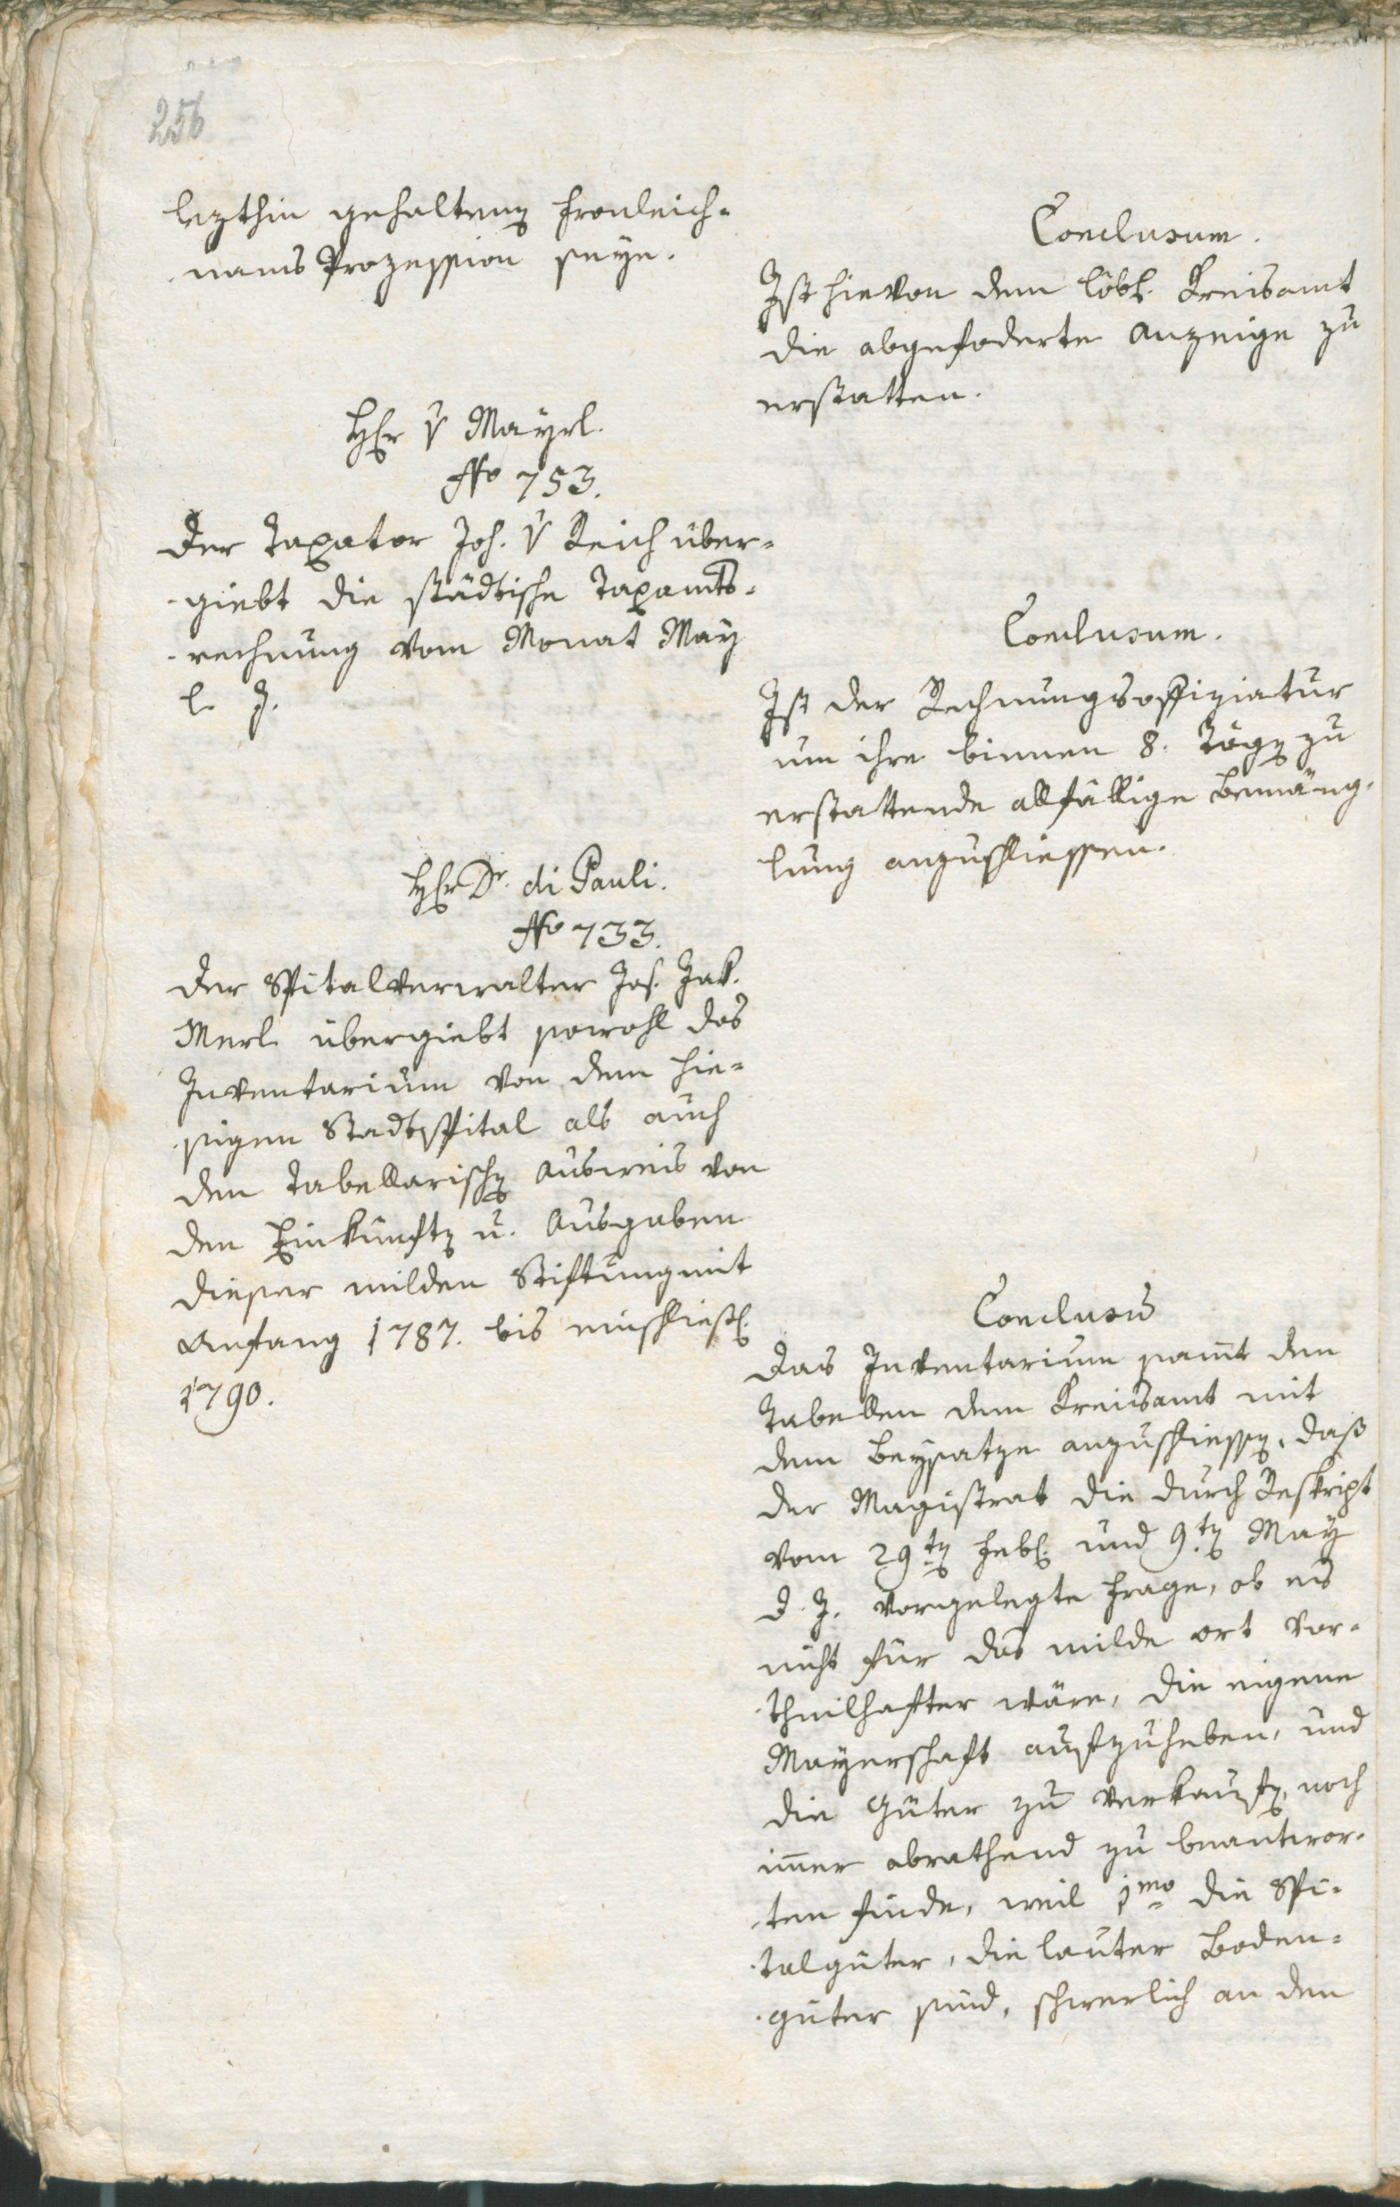 256
lezthin gehaltenen Fronleich-
nams Prozession seye.
Conclusum.
Ist hievon dem löbl. Kreisamt
die abgefoderte Anzeige zu
erstatten.
Hr v Mayrl.
No 753.
Der Taxator Joh. v Reich über-
giebt die städtische Taxamts-
rechnung vom Monat May
l. J.
Conclusum.
Ist der Rechnungsoffiziatur
um ihre binnen 8. Tägen zu
erstattende allfällige Bemäng-
lung anzuschliessen.
Hr Dr. di Pauli.
No 733.
Der Spitalverwalter Jos. Jak.
Merl übergiebt sowohl das
Inventarium von dem hie-
sigen Stadtspital als auch
den tabellarischen Ausweis von
den Einkünften u. Ausgaben
dieser milden Stiftung mit
Anfang 1787. bis einschließl.
1790.
Conclusum
Das Inventarium samt den
Tabellen dem Kreisamt mit
dem Beysatze anzuschliessen, daß
der Magistrat die durch Reskript
vom 29ten Febl. und 9ten May
d. J. vorgelegte Frage, ob es
nicht für das milde Ort vor-
theilhafter wäre, die eigene
Mayerschaft aufzuheben, und
die Güter zu verkaufen, noch
immer abrathend zu beantwor-
ten finde, weil 1mo die Spi-
talgüter, die lauter Boden-
güter sind, schwerlich an den